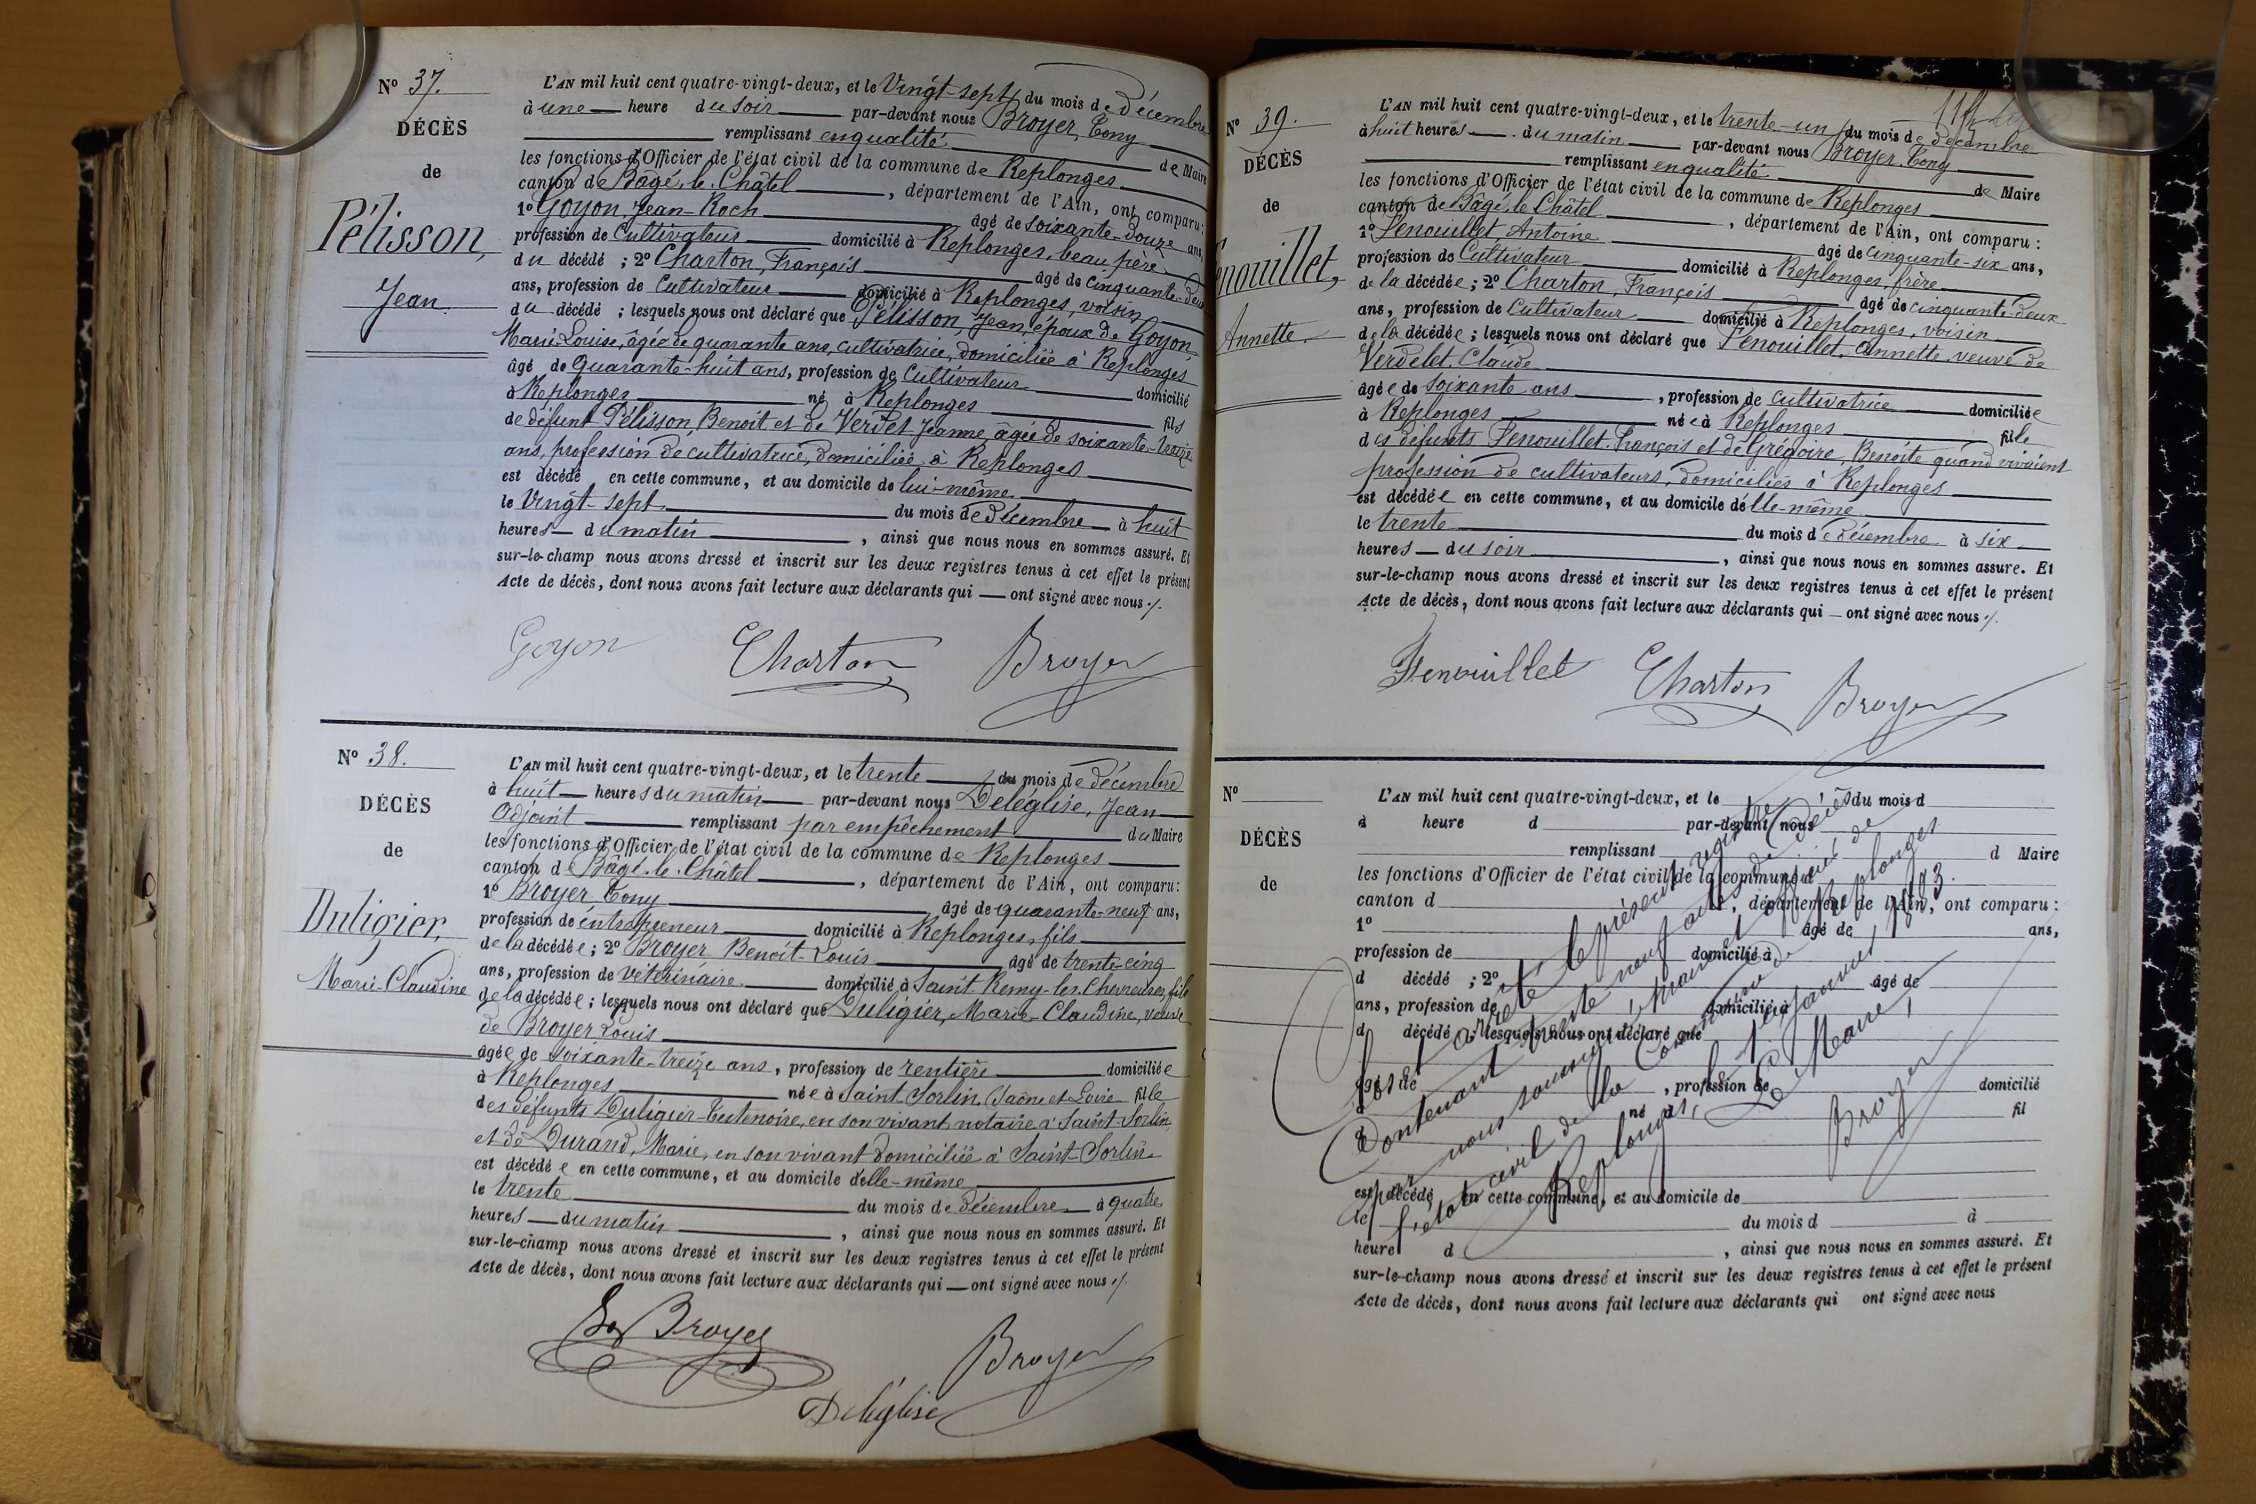 N° 37.
DÉCÈS
de
Pélisson,
Jean.
L'AN mil huit cent quatre-vingt-deux, et le Vingt-sept du mois de Décembre
à une heure du soir par-devant nous Broyer, Tony
remplissant en qualité de Maire
les fonctions d'Officier de l'état civil de la commune de Replonges
canton de Bâgé-le-Châtel, département de l'Ain, ont comparu:
1° Goyon, Jean-Roch âgé de soixante-douze ans,
profession de Cultivateur domicilié à Replonges, beau père
du décédé ; 2° Charton, François âgé de cinquante-deux
ans, profession de Cultivateur domicilié à Replonges, voisin
du décédé ; lesquels nous ont déclaré que Pélisson, Jean, époux de Goyon
Marie-Louise, âgée de quarante ans, cultivatrice, domiciliée à Replonges
âgé de Quarante-huit ans, profession de Cultivateur domicilié
à Replonges né à Replonges fils
de défunt Pélisson, Benoit et de Verdet Jeanne, âgée de soixante-treize
ans, profession de cultivatrice, domiciliée à Replonges
est décédé en cette commune, et au domicile de lui-même
le Vingt-sept du mois de Décembre à huit
heures du matin, ainsi que nous nous en sommes assuré. Et
sur-le-champ nous avons dressé et inscrit sur les deux registres tenus à cet effet le présent
Acte de décès, dont nous avons fait lecture aux déclarants qui — ont signé avec nous ./.
Goyon Charton Broyer
N° 38.
DÉCÈS
de
Duligier,
Marie-Claudine
L'AN mil huit cent quatre-vingt-deux, et le trente du mois de Décembre
à huit heures du matin par-devant nous Deléglise, Jean
Adjoint remplissant par empêchement du Maire
les fonctions d'Officier de l'état civil de la commune de Replonges
canton de Bâgé-le-Châtel, département de l'Ain, ont comparu:
1° Broyer Tony âgé de quarante-neuf ans,
profession de entrepreneur domicilié à Replonges, fils
de la décédée ; 2° Broyer Benoit-Louis âgé de trente-cinq
ans, profession de vétérinaire domicilié à Saint-Remy-les-Chevreuses, fils
de la décédée ; lesquels nous ont déclaré que Duligier, Marie-Claudine, veuve
de Broyer Louis
âgée de soixante-treize ans, profession de rentière domiciliée
à Replonges née à Saint Sorlin, Saône et Loire fille
des défunts Duligier-Teutenoire, en son vivant notaire à Saint-Sorlin,
et de Durand, Marie, en son vivant domiciliée à Saint-Sorlin
est décédée en cette commune, et au domicile d'elle-même
le trente du mois de Décembre à quatre
heures du matin, ainsi que nous nous en sommes assuré. Et
sur-le-champ nous avons dressé et inscrit sur les deux registres tenus à cet effet le présent
Acte de décès, dont nous avons fait lecture aux déclarants qui — ont signé avec nous ./.
Broyer Broyer
Deléglise
N° 39.
DÉCÈS
de
nouillet,
Annette.
L'AN mil huit cent quatre-vingt-deux, et le trente-un du mois de Décembre
à huit heures du matin par-devant nous Broyer, Tony
remplissant en qualité de Maire
les fonctions d'Officier de l'état civil de la commune de Replonges
canton de Bâgé-le-Châtel, département de l'Ain, ont comparu :
1° Fenouillet Antoine âgé de Cinquante-six ans,
profession de Cultivateur domicilié à Replonges, frère
de la décédée ; 2° Charton, François âgé de cinquante-deux
ans, profession de Cultivateur domicilié à Replonges, voisin
de la décédée ; lesquels nous ont déclaré que Fenouillet, Annette veuve de
Verdelet, Claude
âgée de soixante ans, profession de cultivatrice domiciliée
à Replonges née à Replonges fille
des défunts Fenouillet François et de Grégoire, Benoîte quand vivaient
profession de cultivateurs, domiciliés à Replonges
est décédée en cette commune, et au domicile d'elle-même
le trente du mois de Décembre à six
heures du soir, ainsi que nous nous en sommes assuré. Et
sur-le-champ nous avons dressé et inscrit sur les deux registres tenus à cet effet le présent
Acte de décès, dont nous avons fait lecture aux déclarants qui — ont signé avec nous ./.
Fenouillet Charton Broyer
N°
DÉCÈS
de
L'AN mil huit cent quatre-vingt-deux, et le du mois d
à heure d par-devant nous
remplissant d Maire
les fonctions d'Officier de l'état civil de la commune d
canton d , département de l'Ain, ont comparu :
1° âgé de ans,
profession de domicilié à
d décédé ; 2° âgé de
ans, profession de domicilié à
d décédé ; lesquels nous ont déclaré que
âgé de , profession de domicilié
à né à fil
d
est décédé en cette commune, et au domicile de
le du mois d à
heure d , ainsi que nous nous en sommes assuré. Et
sur-le-champ nous avons dressé et inscrit sur les deux registres tenus à cet effet le présent
Acte de décès, dont nous avons fait lecture aux déclarants qui ont signé avec nous
Clos et arrêté le présent registre
Contenant trente neuf actes de Décès
par nous soussigné, Maire et officier de
l'état civil de la Commune de Replonges
Replonges, le 1er Janvier 1883.
Le Maire,
Broyer